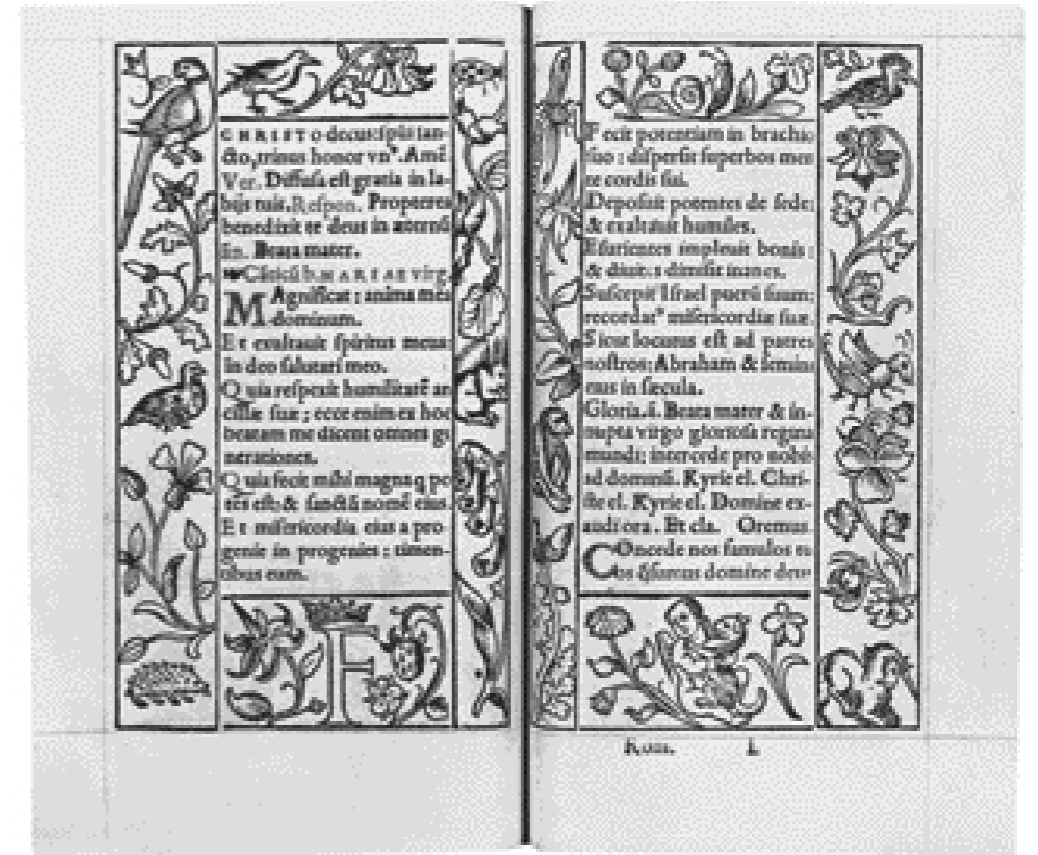 CHRISTO decus: spūs san-
cto, trinus honor vnꝰ. Amē.
Ver. Diffusa est gratia in la-
bijs tuis. Respon. Propterea
benedixit te deus in æternū
Beata mater.
Cāticū b. MARIAE virg.
MAgnificat: anima mea
dominum.
Et exultauit spiritus meus
in deo salutari meo.
Quia respexit humilitatē an
cillæ suæ; ecce enim ex hoc
beatam me dicent omnes ge
nerationes.
Quia fecit mihi magna q po
tēs est: & sanctū nomē eius.
Et misericordia eius a pro
genie in progenies: timen-
tibus eum.
E
Fecit potentiam in brachio
suo: dispersit superbos men
te cordis sui.
Deposuit potentes de sede:
& exaltauit humiles.
Esurientes impleuit bonis:
& diuites dimisit inanes.
Suscepit Israel puerū suum:
recordatꝰ misericordiæ suæ.
Sicut locutus est ad patres
nostros: Abraham & semini
eius in sæcula.
Gloria. ā. Beata mater & in-
nupta virgo gloriosa regina
mundi: intercede pro nobis
ad dominū. Kyrie el. Chri-
ste el. Kyrie el. Domine ex-
audi ora. Et cla. Oremus
COncede nos famulos tu
os quæsumus domine deus
Rom. L